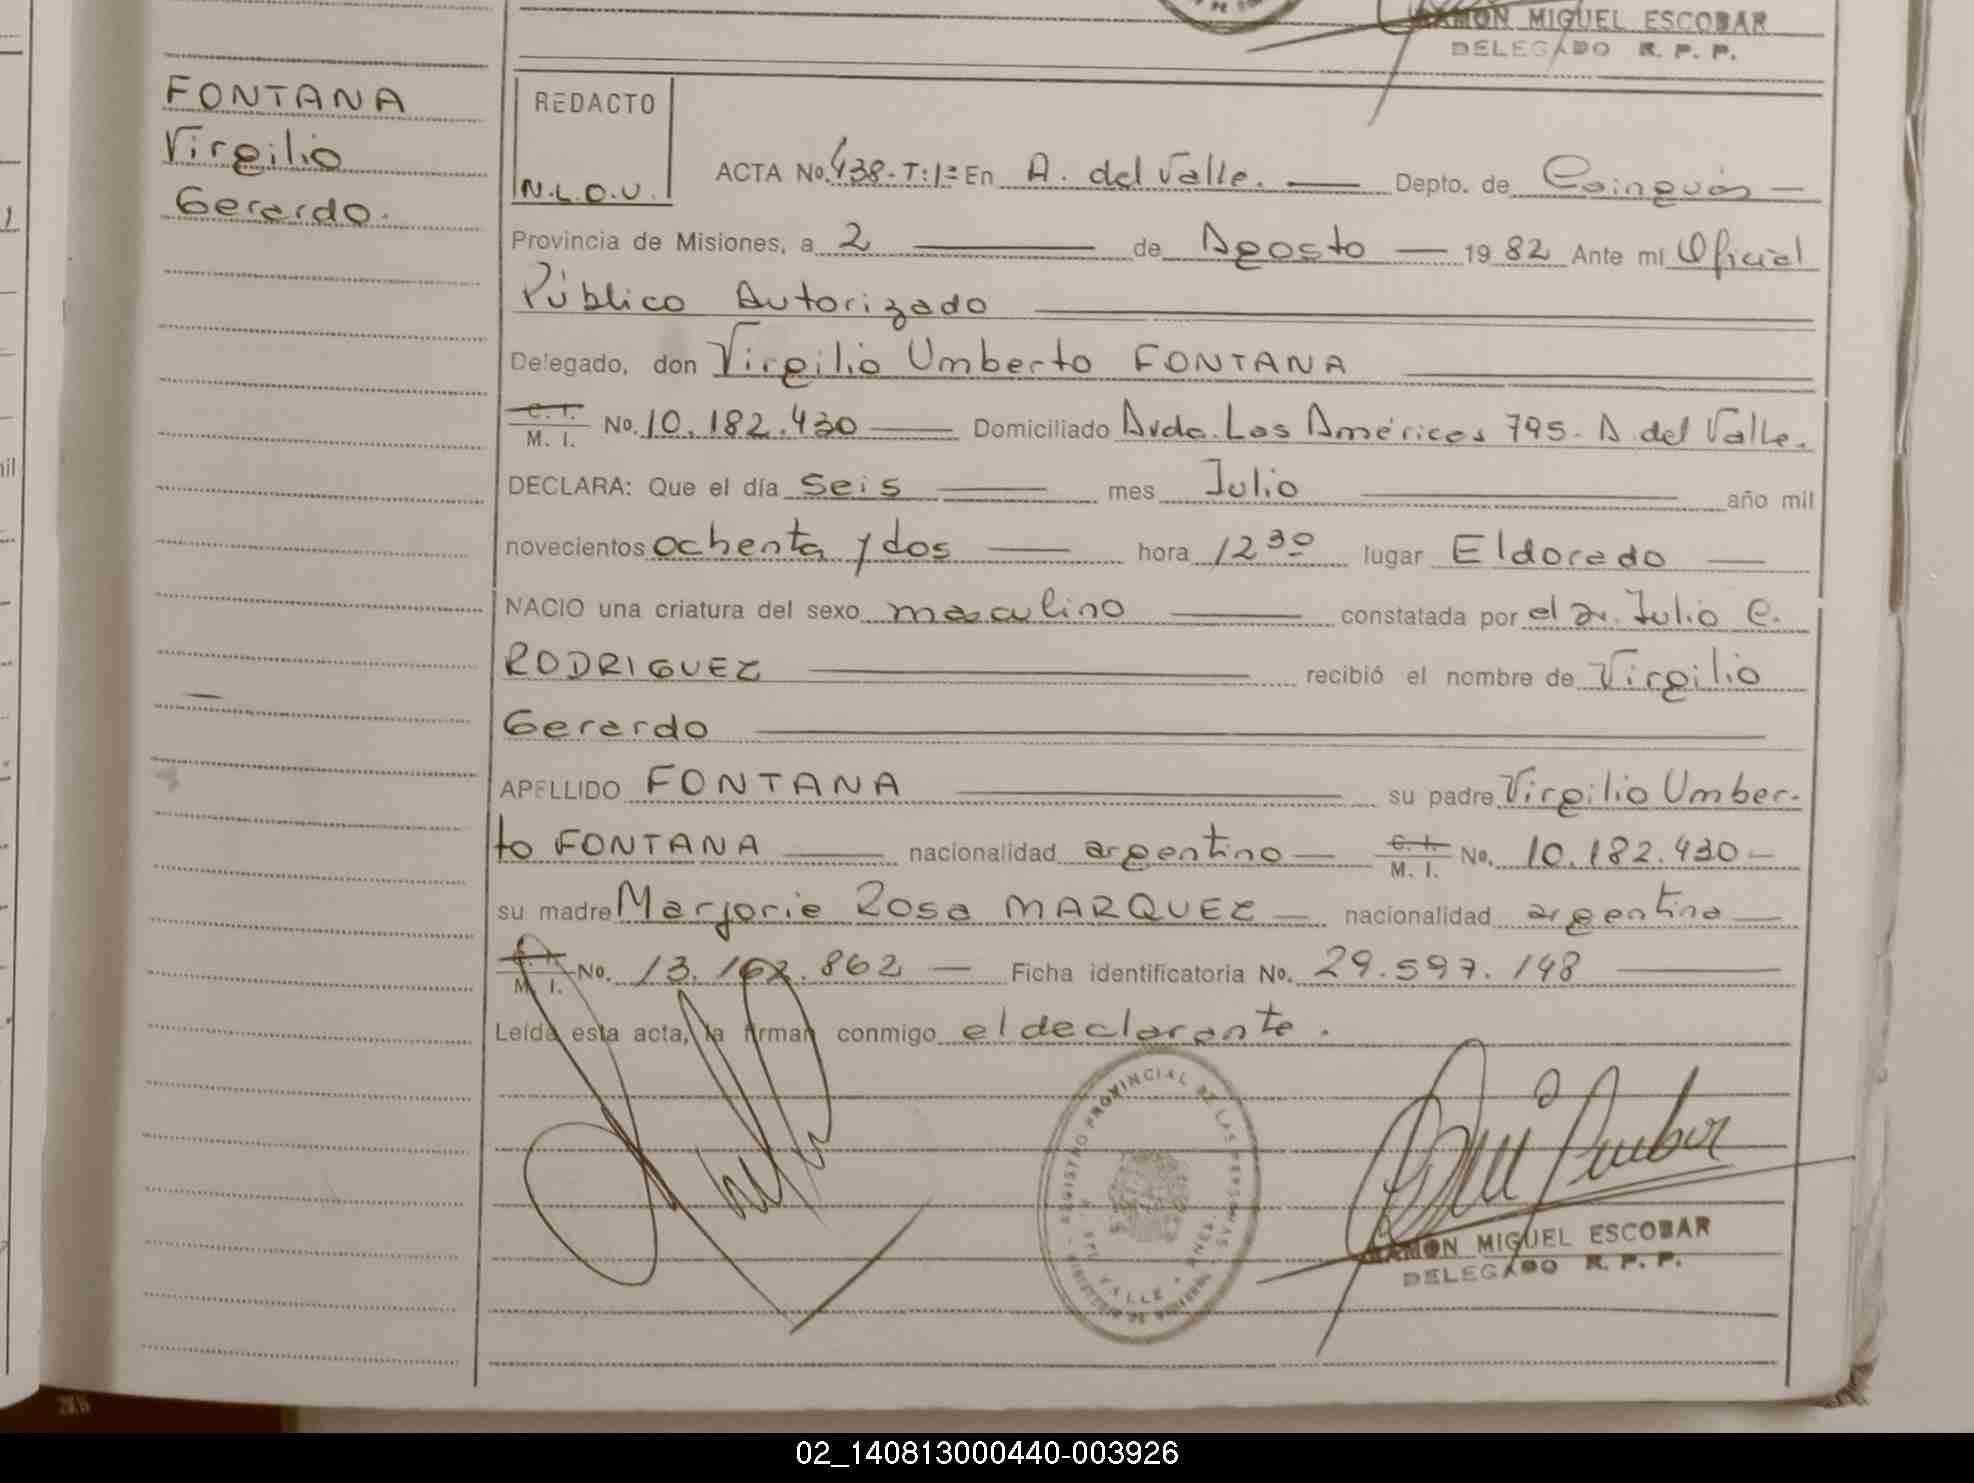 RAMON MIGUEL ESCOBAR
DELEGADO R. P. P.
FONTANA
Virgilio
Gerardo.
REDACTO
N.L.O.U.
ACTA No. 438-T:1º En A. del Valle. Depto. de Cainguás
Provincia de Misiones, a 2 de Agosto 1982 Ante mi Oficial
Público Autorizado
Delegado, don Virgilio Umberto FONTANA
C. I.
M. I. No. 10.182.430 Domiciliado Avda. Las Américas 795. A. del Valle.
DECLARA: Que el día seis mes Julio año mil
novecientos ochenta y dos hora 12 30 lugar Eldorado
NACIO una criatura del sexo masculino constatada por el Dr. Julio C.
RODRIGUEZ recibió el nombre de Virgilio
Gerardo
APELLIDO FONTANA su padre Virgilio Umber-
to FONTANA nacionalidad argentino C. I. M. I. No. 10.182.430
su madre Marjorie Rosa MARQUEZ nacionalidad argentina
C. I. M. I. No. 13.162.862 Ficha identificatoria No. 29.597.148
Leída esta acta, la firman conmigo el declarante.
REGISTRO PROVINCIAL DE LAS PERSONAS
DEL VALLE
RAMON MIGUEL ESCOBAR
DELEGADO R. P. P.
02_140813000440-003926